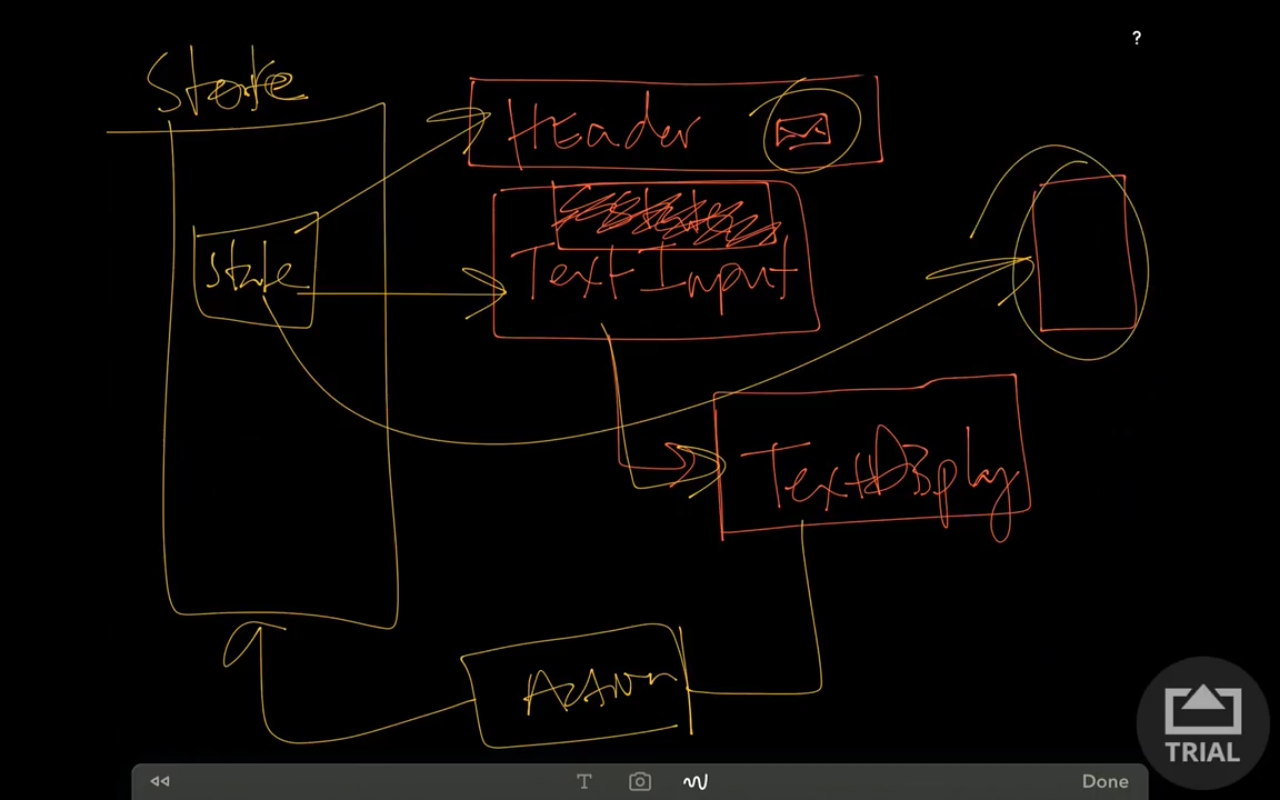 ?
Store
Header
State
Text Input
TextDisplay
Action
TRIAL
T
Done